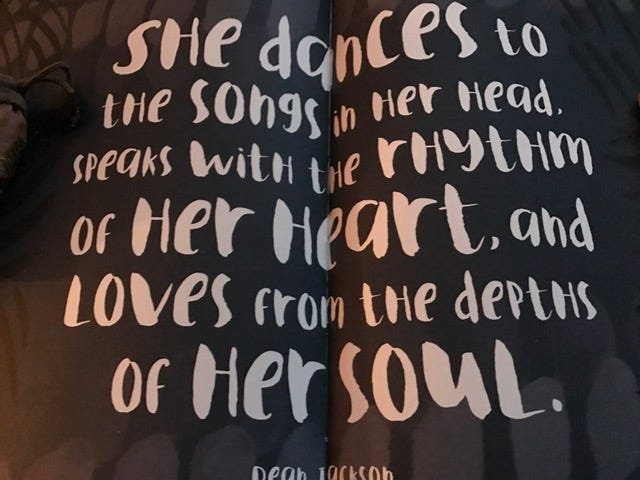 SHE dances to
the songs in Her Head,
speaks with the rHYTHM
of Her Heart, and
Loves from the depths
of Her soul.
Dean Jackson